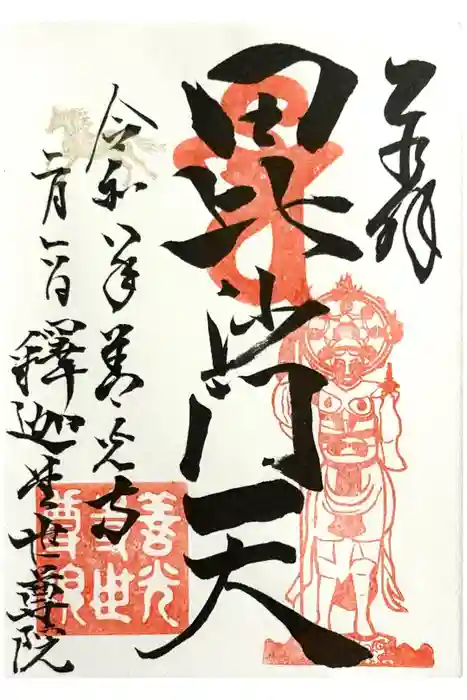 奉拝
毘沙門天
令和八年善光寺
二月
釋迦堂世尊院
善光
寺世
尊院